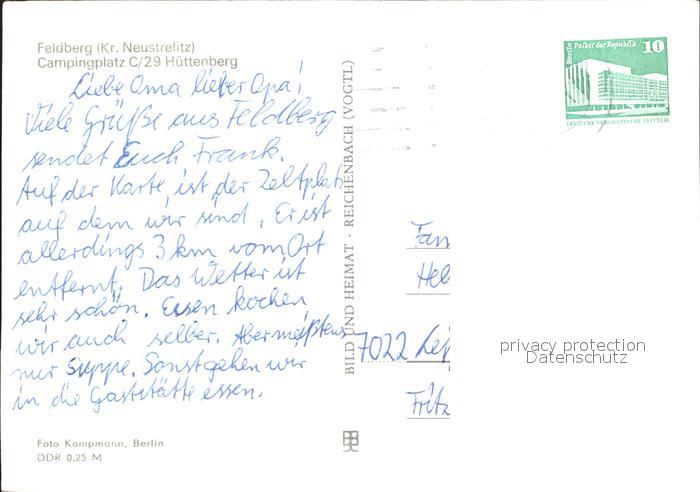 Feldberg (Kr. Neustrelitz)
Campingplatz C/29 Hüttenberg
Liebe Oma lieber Opa!
Viele Grüße aus Feldberg
sendet Euch Frank.
Auf der Karte ist der Zeltplatz
auf dem wir sind. Er ist
allerdings 3 km vom Ort
entfernt. Das Wetter ist
sehr schön. Essen kochen
wir auch selber. Aber meistens
nur Suppe. Sonst gehen wir
in die Gaststätte essen.
Foto Kampmann, Berlin
DDR 0,25 M
BILD UND HEIMAT · REICHENBACH (VOGTL)
Berlin Palast der Republik 10
DEUTSCHE DEMOKRATISCHE REPUBLIK
Fam
Hel
7022 Lei
Fritz
privacy protection
Datenschutz